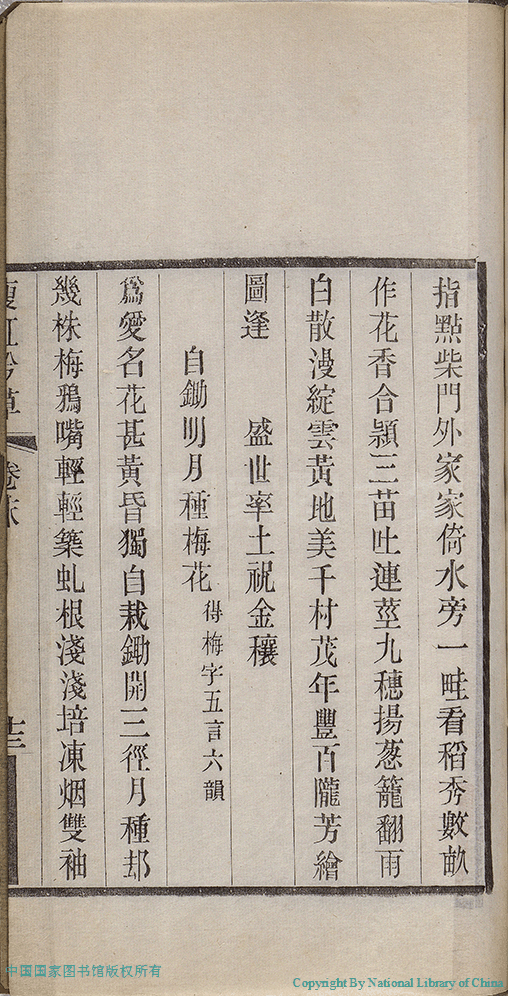 指點柴門外家家倚水旁一畦看稻秀數畝
作花香合潁三苗吐連莖九穗揚葱籠翻雨
白散漫綻雲黃地美千村茂年豐百隴芳繪
圖逢　盛世率土祝金穰
自鋤明月種梅花得梅字五言六韻
為愛名花甚黃昏獨自栽鋤開三徑月種却
幾株梅鴉嘴輕輕築虬根淺淺培凍烟雙袖
卷
中国国家图书馆版权所有
Copyright By National Library of China